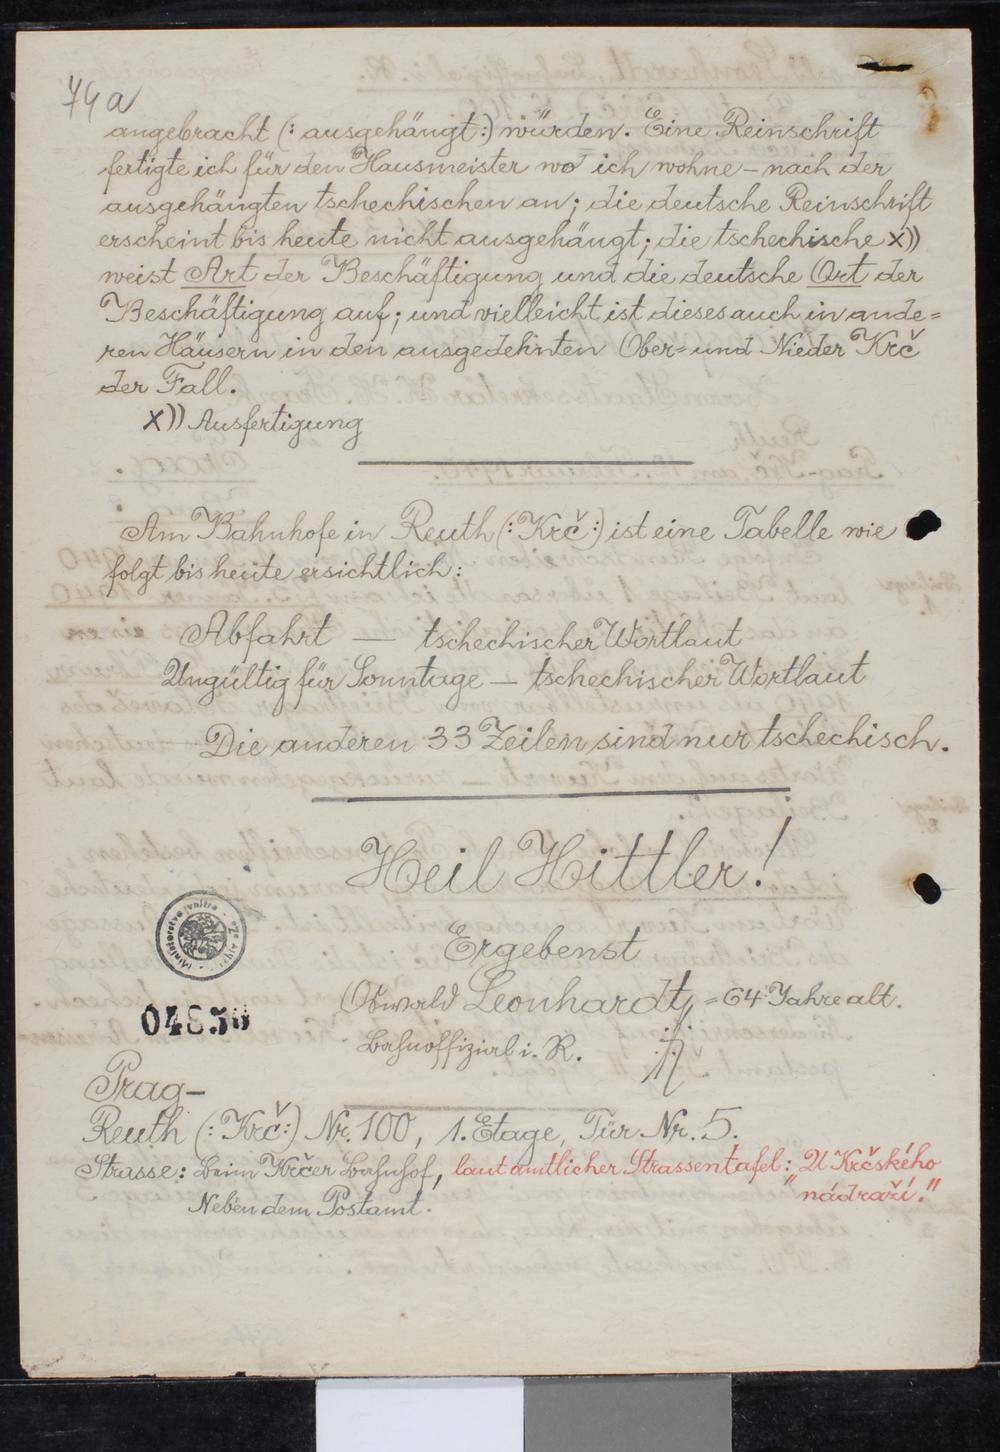 74a
angebracht (: ausgehängt :) würden. Eine Reinschrift
fertigte ich für den Hausmeister wo ich wohne – nach der
ausgehängten tschechischen an; die deutsche Reinschrift
erscheint bis heute nicht ausgehängt; die tschechische x))
weist Art der Beschäftigung und die deutsche Ort der
Beschäftigung auf; und vielleicht ist dieses auch in ande=
ren Häusern in den ausgedehnten Ober= und Nieder Krč
der Fall.
x)) Ausfertigung
Am Bahnhofe in Reuth (: Krč :) ist eine Tabelle wie
folgt bis heute ersichtlich:
Abfahrt — tschechischer Wortlaut
Ungültig für Sonntage — tschechischer Wortlaut
Die anderen 33 Zeilen sind nur tschechisch.
Heil Hittler!
Ergebenst
Oswald Leonhardt, = 64 Jahre alt.
Bahnoffizial i. R.
Ministerstvo vnitra
Prag–
Reuth (: Krč :) Nr. 100, 1. Etage, Tür Nr. 5.
Strasse: Beim Krčer Bahnhof, laut amtlicher Strassentafel: „U Krčského
nádraží."
Neben dem Postamt.